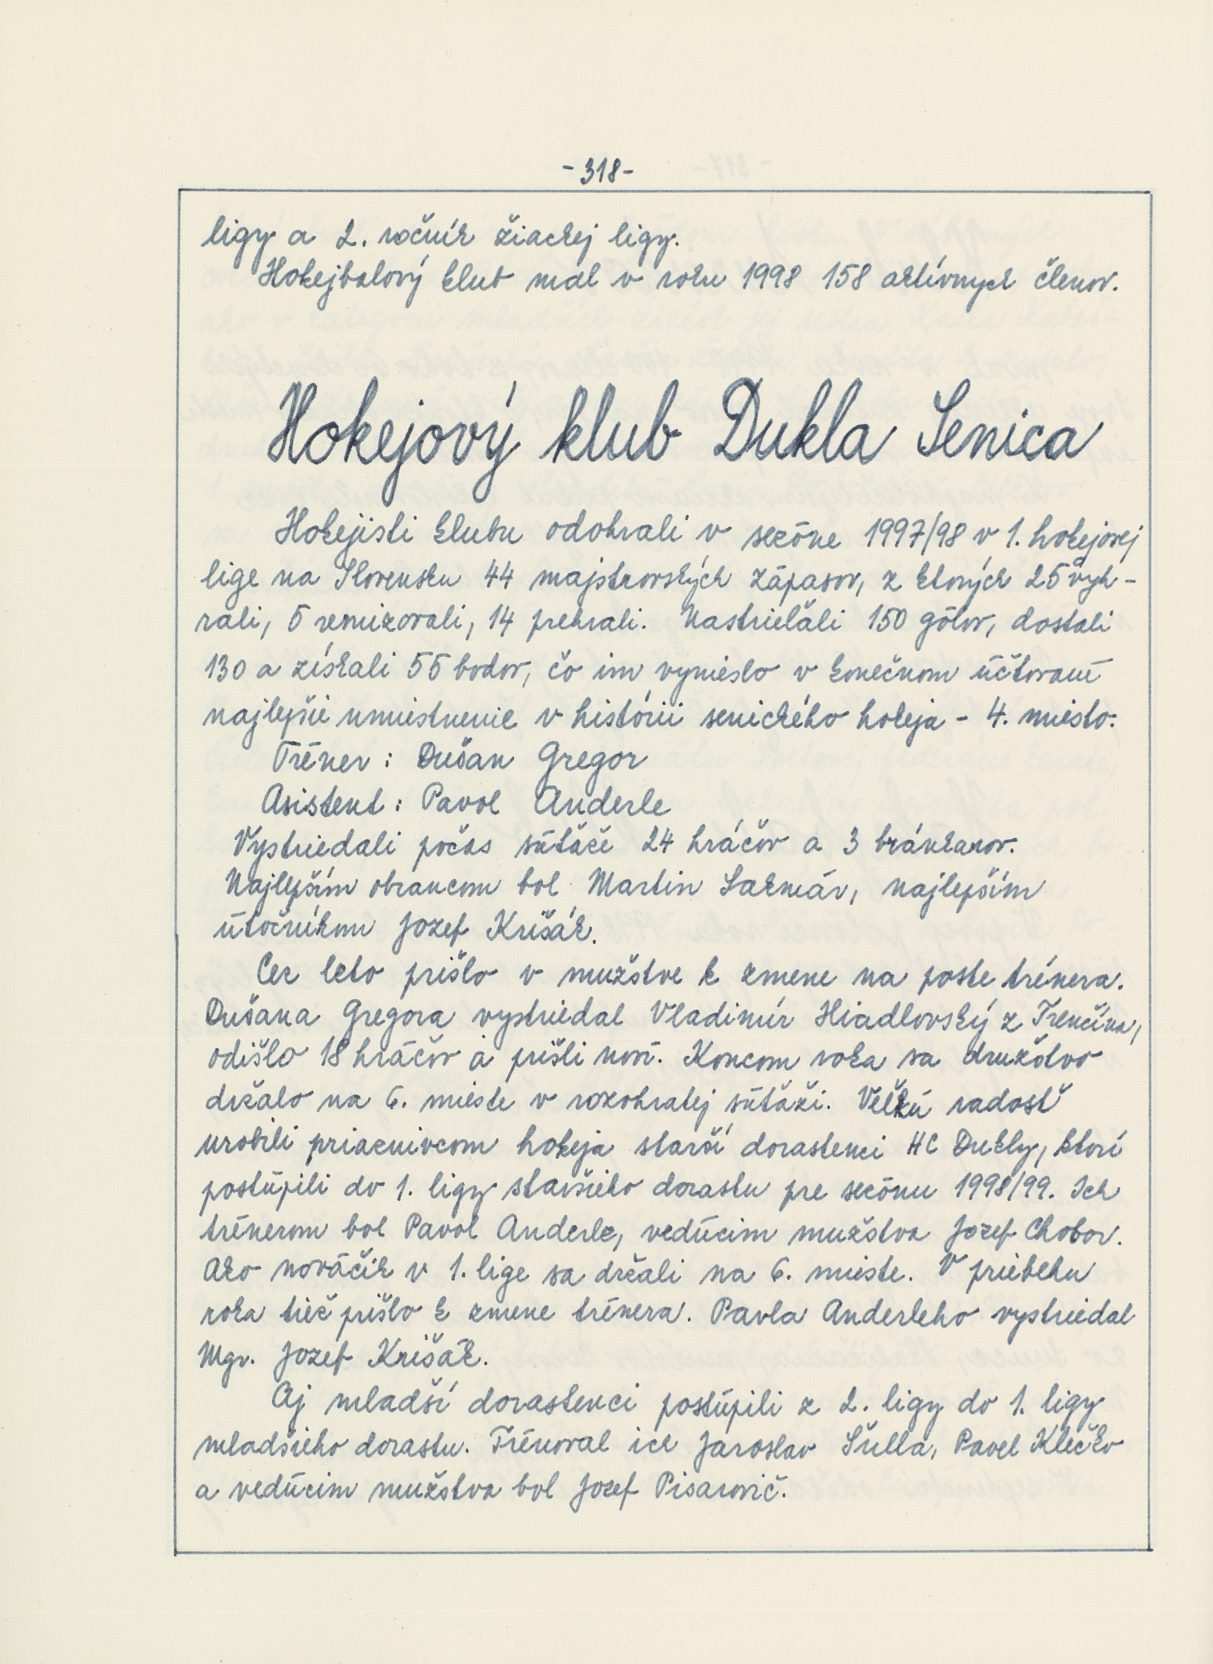 -318-
ligy a 2. ročník žiackej ligy.
Hokejbalový klub mal v roku 1998 158 aktívnych členov.
Hokejový klub Dukla Senica
Hokejisti klubu odohrali v sezóne 1997/98 v 1. hokejovej
lige na Slovensku 44 majstrovských zápasov, z ktorých 25 vyh-
rali, 5 remizovali, 14 prehrali. Nastrieľali 150 gólov, dostali
130 a získali 55 bodov, čo im vynieslo v konečnom účtovaní
najlepšie umiestnenie v histórii senického hokeja - 4. miesto.
Tréner : Dušan Gregor
Asistent : Pavol Anderle
Vystriedali počas súťaže 24 hráčov a 3 bránkarov.
Najlepším obrancom bol Martin Sakmár, najlepším
útočníkom Jozef Krišák.
Cez leto prišlo v mužstve k zmene na poste trénera.
Dušana Gregora vystriedal Vladimír Hiadlovský z Trenčína,
odišlo 18 hráčov a prišli noví. Koncom roka sa družstvo
držalo na 6. mieste v rozohratej súťaži. Veľkú radosť
urobili priaznivcom hokeja starší dorastenci HC Dukly, ktorí
postúpili do 1. ligy staršieho dorastu pre sezónu 1998/99. Ich
trénerom bol Pavol Anderle, vedúcim mužstva Jozef Chobor.
Ako nováčik v 1. lige sa držali na 6. mieste. V priebehu
roka tiež prišlo k zmene trénera. Pavla Anderleho vystriedal
Mgr. Jozef Krišák.
Aj mladší dorastenci postúpili z 2. ligy do 1. ligy
mladšieho dorastu. Trénoval ich Jaroslav Šulla, Pavel Klečko
a vedúcim mužstva bol Jozef Pisarovič.